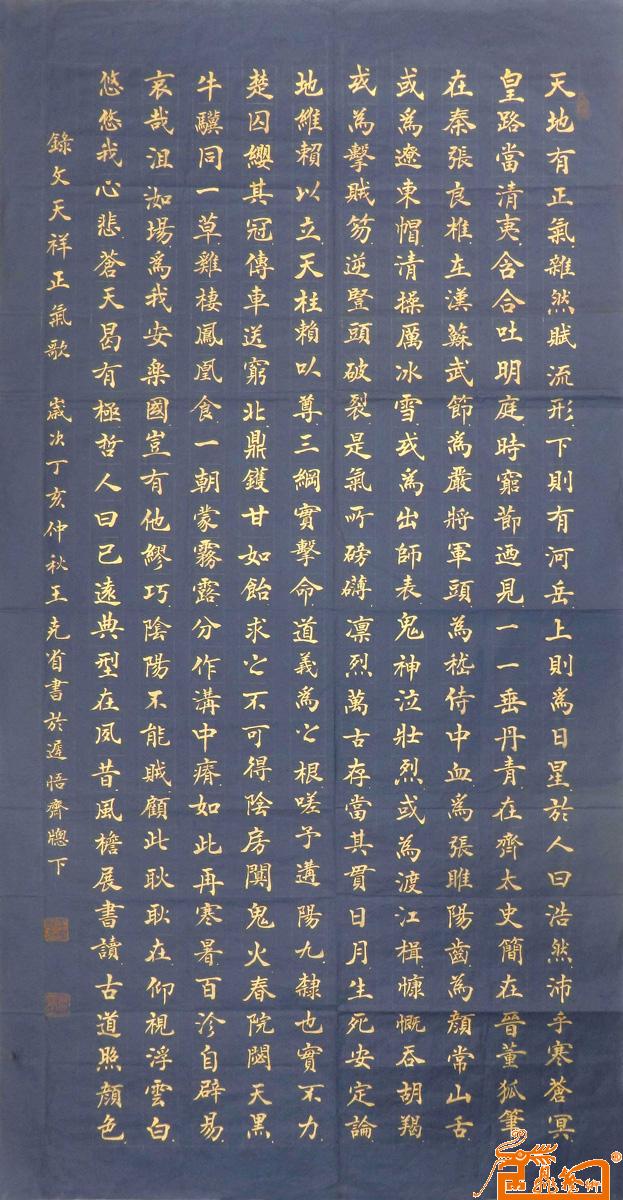 天地有正氣雜然賦流形下則有河岳上則為日星於人曰浩然沛乎寒蒼冥
皇路當清夷含合吐明庭時窮節迺見一一垂丹青在齊太史簡在晉董狐筆
在秦張良椎在漢蘇武節為嚴將軍頭為嵇侍中血為張睢陽齒為顏常山舌
或為遼東帽清操厲冰雪或為出師表鬼神泣壯烈或為渡江楫慷慨吞胡羯
或為擊賊笏逆豎頭破裂是氣所磅礴凛烈萬古存當其貫日月生死安定論
地維賴以立天柱賴以尊三綱實擊命道義為之根嗟予遘陽九隸也實不力
楚囚纓其冠傳車送窮北鼎鑊甘如飴求之不可得陰房闃鬼火春院閟天黑
牛驥同一草雞棲鳳凰食一朝蒙霧露分作溝中瘠如此再寒暑百沴自辟易
哀哉沮洳場為我安樂國豈有他繆巧陰陽不能賊顧此耿耿在仰視浮雲白
悠悠我心悲蒼天曷有極哲人日已遠典型在夙昔風檐展書讀古道照顏色
錄文天祥正氣歌 歲次丁亥仲秋王克省書於遲悟齋牕下